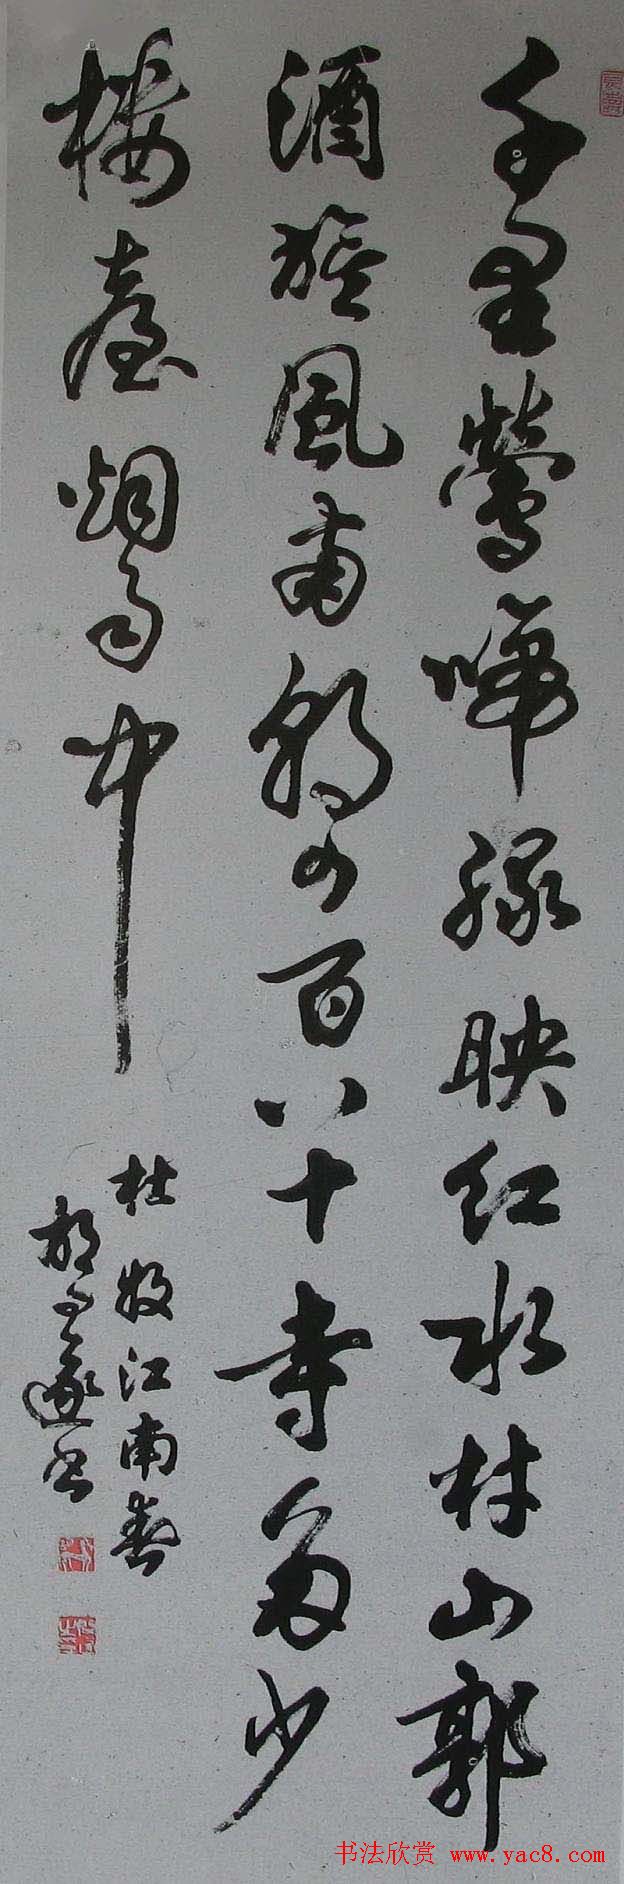 千里鶯啼緑映红水村山郭
酒旗風南朝四百八十寺多少
楼臺烟雨中
杜牧江南春
胡问遂书
书法欣赏 www.yac8.com